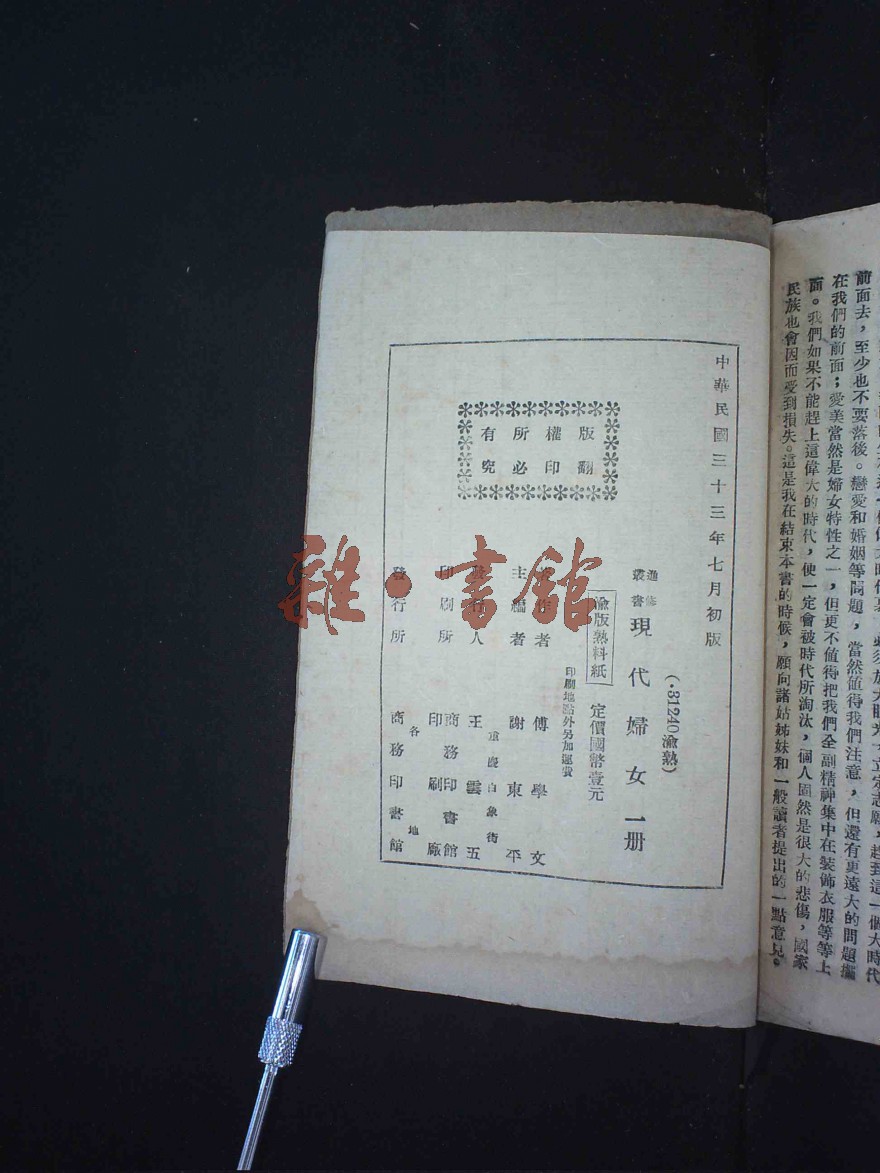 前面去，至少也不要落後。戀愛和婚姻等問題，當然値得我們注意，但還有更遠大的問題擺
在我們的前面；愛美當然是婦女特性之一，但更不値得把我們全副精神集中在裝飾衣服等等上
面。我們如果不能趕上這偉大的時代，便一定會被時代所淘汰，個人固然是很大的悲傷，國家
民族也會因而受到損失。這是我在結束本書的時候，願向諸姑姊妹和一般讀者提出的一點意見。
中華民國三十三年七月初版
(·31240渝熟)
叢書
現代婦女一册
渝版熟料紙
定價國幣壹元
印刷地點外另加運費
版權所有
翻印必究
者 傅學文
主編者 謝東平
重慶白象街
發行人 王雲五
印刷所 商務印書館印刷廠
各地
發行所 商務印書館
雜·書館